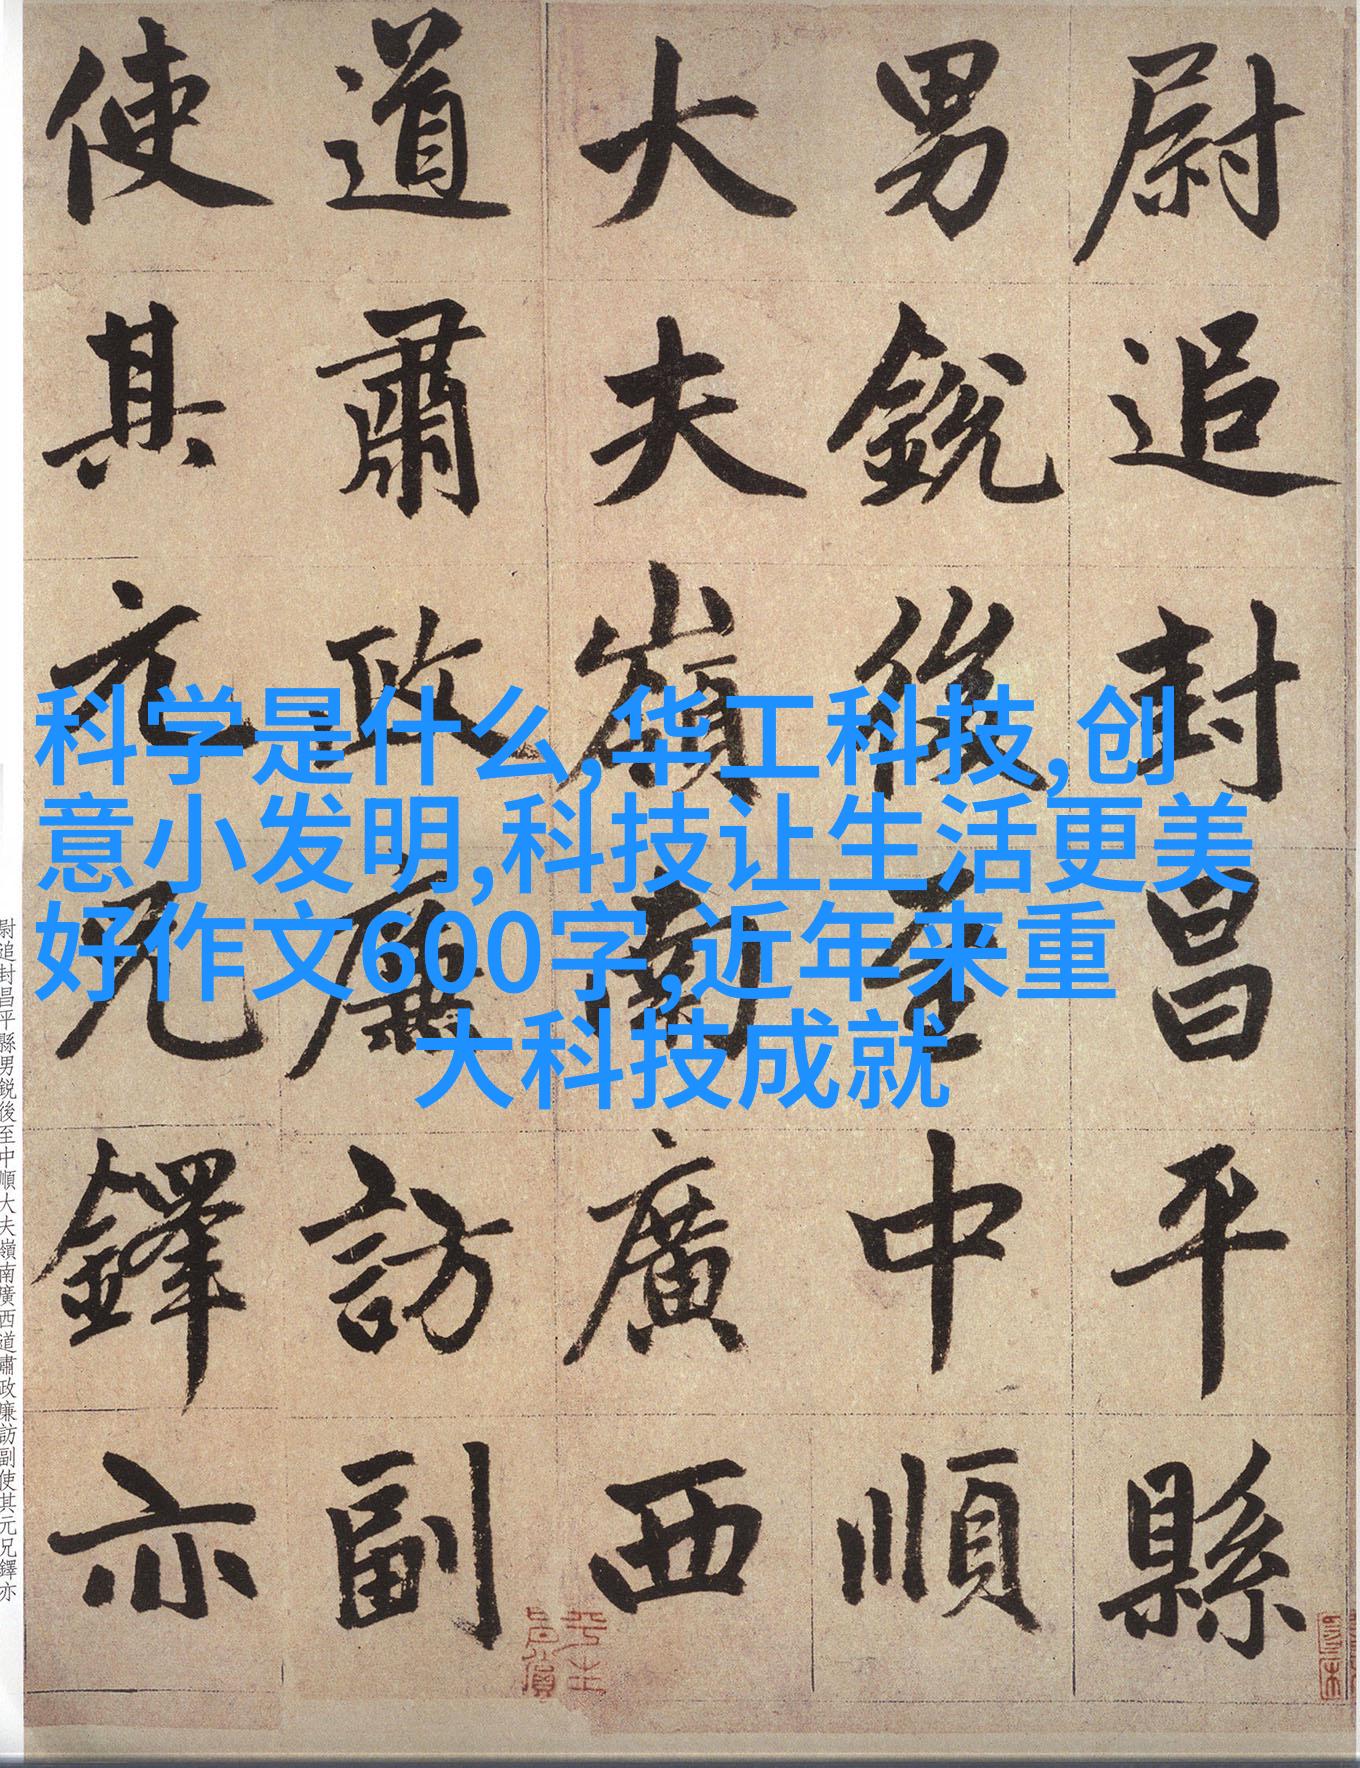 尉追封昌平縣
男銳後至中順
大夫嶺南廣西
道肅政廉訪副
使其元兄鐸亦
科学是什么,华工科技,创
意小发明,科技让生活更美
好作文600字,近年来重
大科技成就
尉追封昌平縣男銳後至中順大夫嶺南廣西道肅政廉訪副使其元兄鐸亦